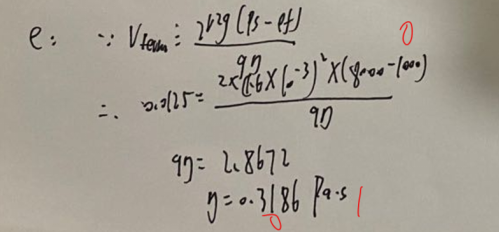 e: ∵ Vterm = 2r²g(ρs-ρf)
9η
0
∴ 0.0125 = 2×(1.6×10⁻³)²×(8000-1000)
9η
9η = 2.8672
η = 0.3186 Pa·s |
0